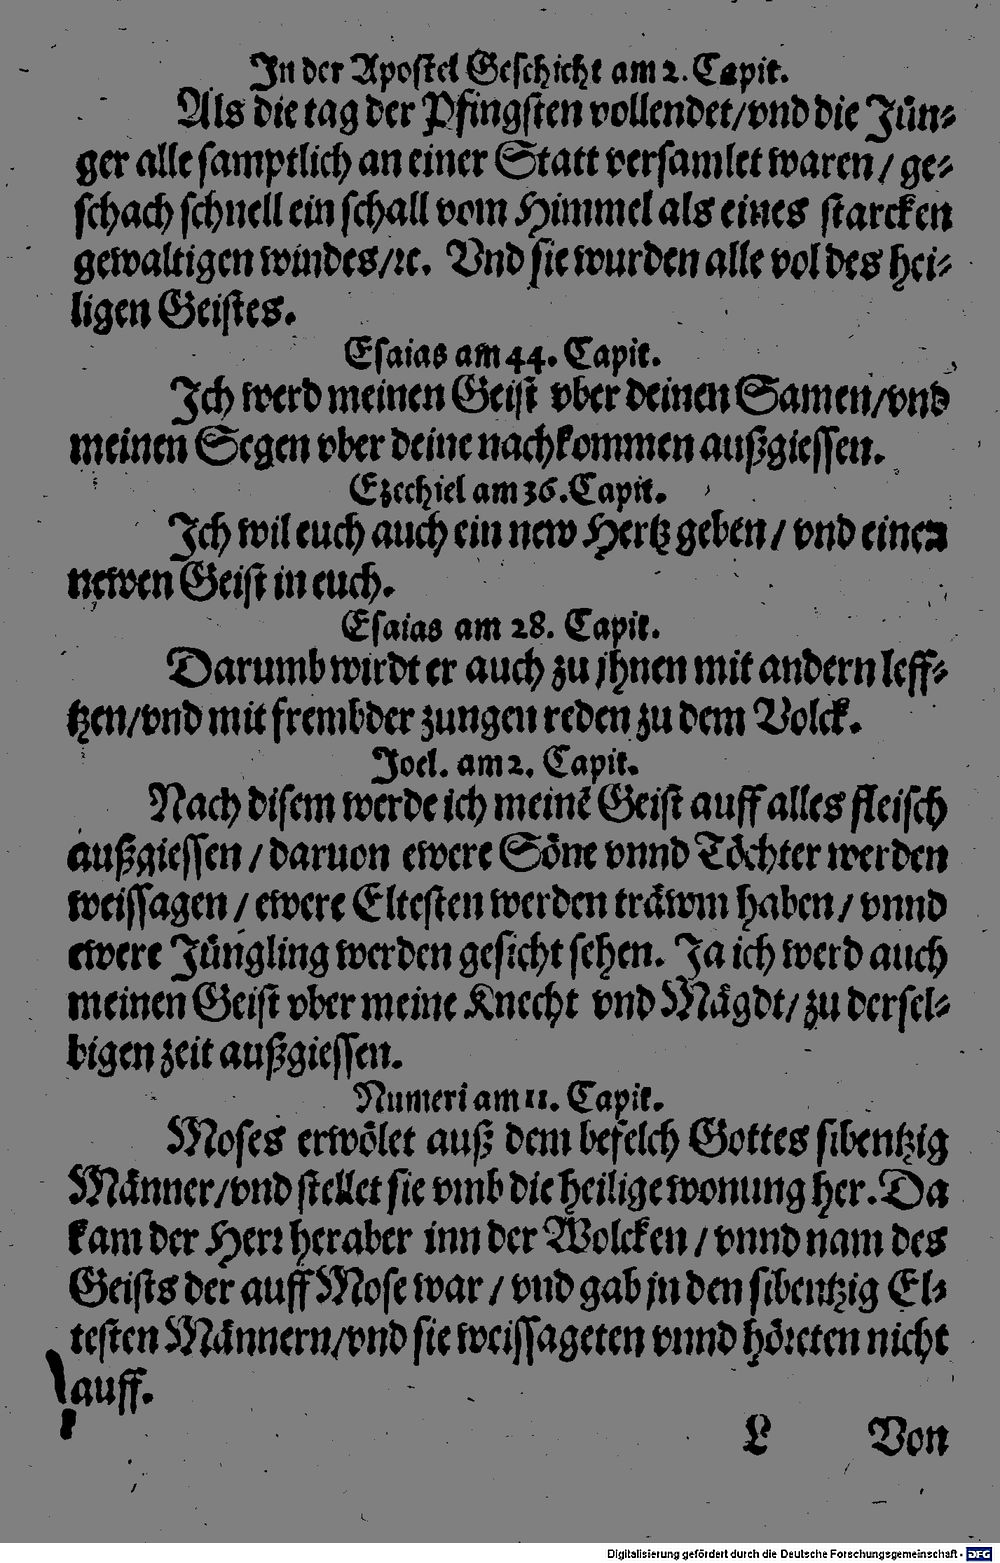 In der Apostel Geschicht am 2. Capit.
Als die tag der Pfingsten vollendet/vnd die Jün-
ger alle samptlich an einer Statt versamlet waren / ge-
schach schnell ein schall vom Himmel als eines starcken
gewaltigen windes/ꝛc. Vnd sie wurden alle vol des hei-
ligen Geistes.
Esaias am 44. Capit.
Ich werd meinen Geist vber deinen Samen/vnd
meinen Segen vber deine nachkommen außgiessen.
Ezechiel am 36. Capit.
Ich wil euch auch ein new Hertz geben / vnd einen
newen Geist in euch.
Esaias am 28. Capit.
Darumb wirdt er auch zu jhnen mit andern leff-
tzen/vnd mit frembder zungen reden zu dem Volck.
Joel. am 2. Capit.
Nach disem werde ich meinē Geist auff alles fleisch
außgiessen / daruon ewere Söne vnnd Töchter werden
weissagen / ewere Eltesten werden träwm haben / vnnd
ewere Jüngling werden gesicht sehen. Ja ich werd auch
meinen Geist vber meine Knecht vnd Mägdt/ zu dersel-
bigen zeit außgiessen.
Numeri am 11. Capit.
Moses erwölet auß dem befelch Gottes sibentzig
Männer/vnd stellet sie vmb die heilige wonung her. Da
kam der Herr heraber inn der Wolcken / vnnd nam des
Geists der auff Mose war / vnd gab jn den sibentzig El-
testen Männern/vnd sie weissageten vnnd höreten nicht
auff.
L Von
Digitalisierung gefördert durch die Deutsche Forschungsgemeinschaft - DFG